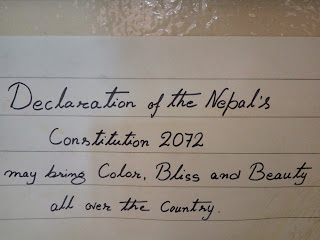 Declaration of the Nepal's
Constitution 2072
may bring Color, Bliss and Beauty
all over the Country.